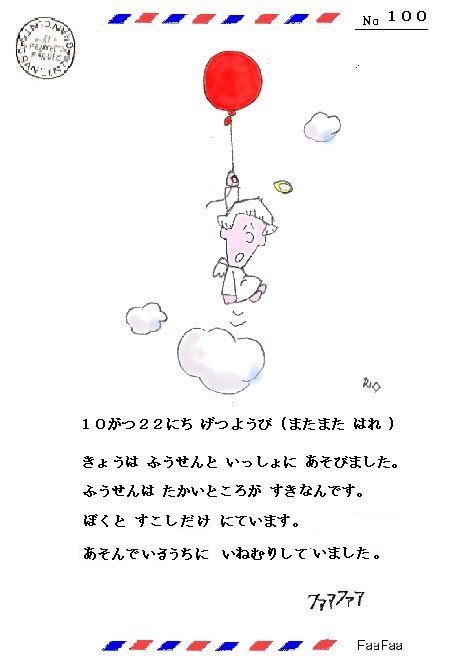 No 100
RIO
10がつ22にち げつようび (またまた はれ )
きょうは ふうせんと いっしょに あそびました。
ふうせんは たかいところが すきなんです。
ぼくと すこしだけ にています。
あそんでいるうちに いねむりしていました。
ファアファア
FaaFaa